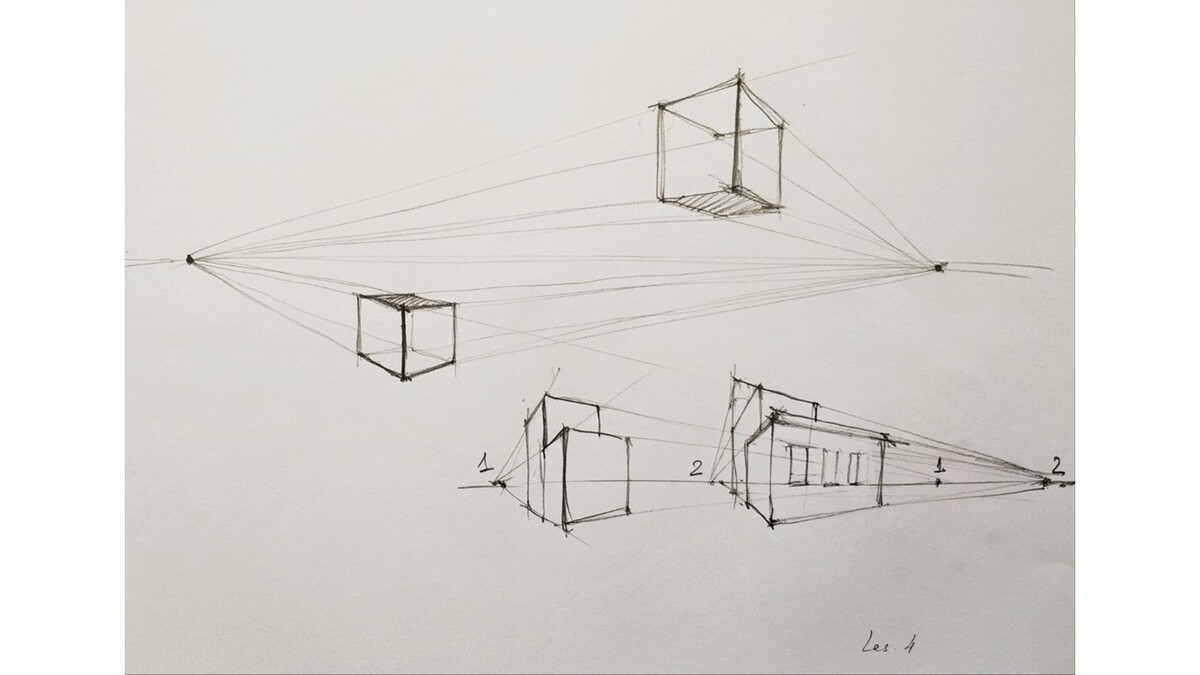 1 2 1 2
Les. 4